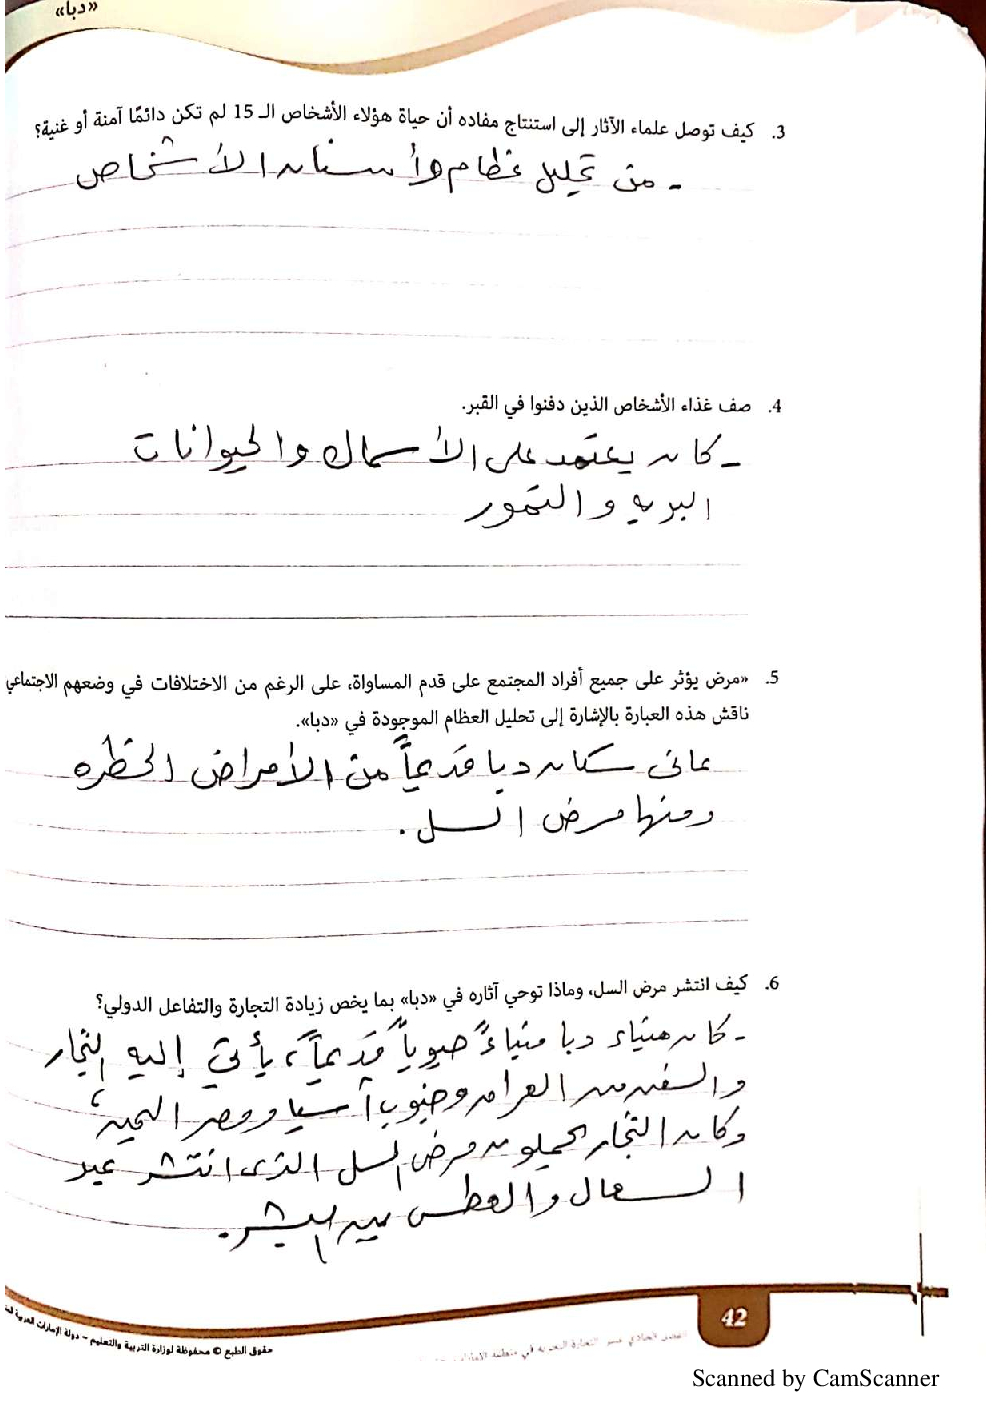 «دبا»
3. كيف توصل علماء الآثار إلى استنتاج مفاده أن حياة هؤلاء الأشخاص الـ 15 لم تكن دائمًا آمنة أو غنية؟
- من تحليل عظام وأسنان الأشخاص
4. صف غذاء الأشخاص الذين دفنوا في القبر.
- كان يعتمد على الأسماك والحيوانات
البرية والتمور
5. «مرض يؤثر على جميع أفراد المجتمع على قدم المساواة، على الرغم من الاختلافات في وضعهم الاجتماعي
ناقش هذه العبارة بالإشارة إلى تحليل العظام الموجودة في «دبا».
عانى سكان دبا قديماً من الأمراض الخطره
ومنها مرض السل.
6. كيف انتشر مرض السل، وماذا توحي آثاره في «دبا» بما يخص زيادة التجارة والتفاعل الدولي؟
- كان ميناء دبا ميناءً حيوياً قديماً، يأتي إليه التجار
والسفن من العراق وجنوب آسيا ومصر اليمن،
وكان التجار يحملون مرض السل الذي انتشر عبر
السعال والعطس بين البشر.
42
حقوق الطبع © محفوظة لوزارة التربية والتعليم – دولة الإمارات العربية
Scanned by CamScanner